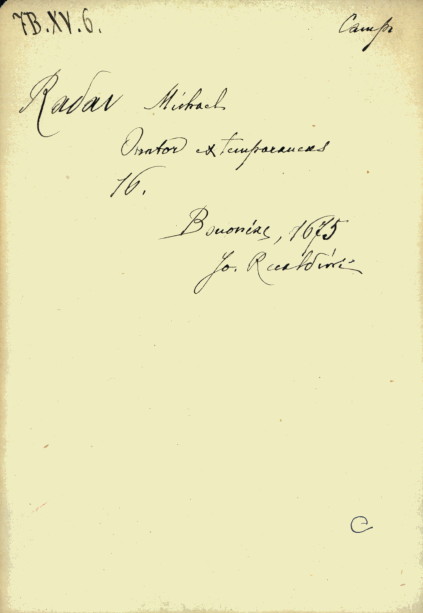 7B.XV.6.
Camp
Radau Michael
Orator extemporaneus
16.
Bononiae, 1675
Jo. Recaldini
C